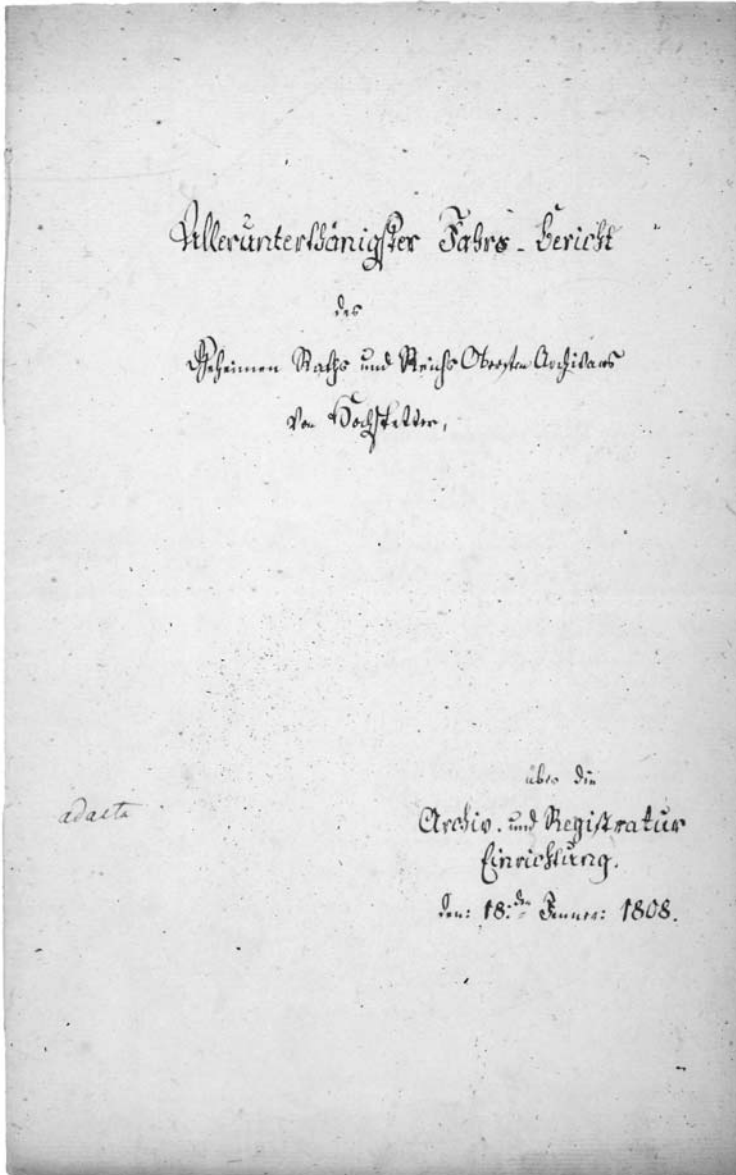 Allerunterthänigster Jahrs-Bericht
des
Geheimen Raths und Reichs Obersten Archivars
von Hochstetter,
über die
Archiv- und Registratur
Einrichtung.
den: 18:den Jenner: 1808.
ad acta